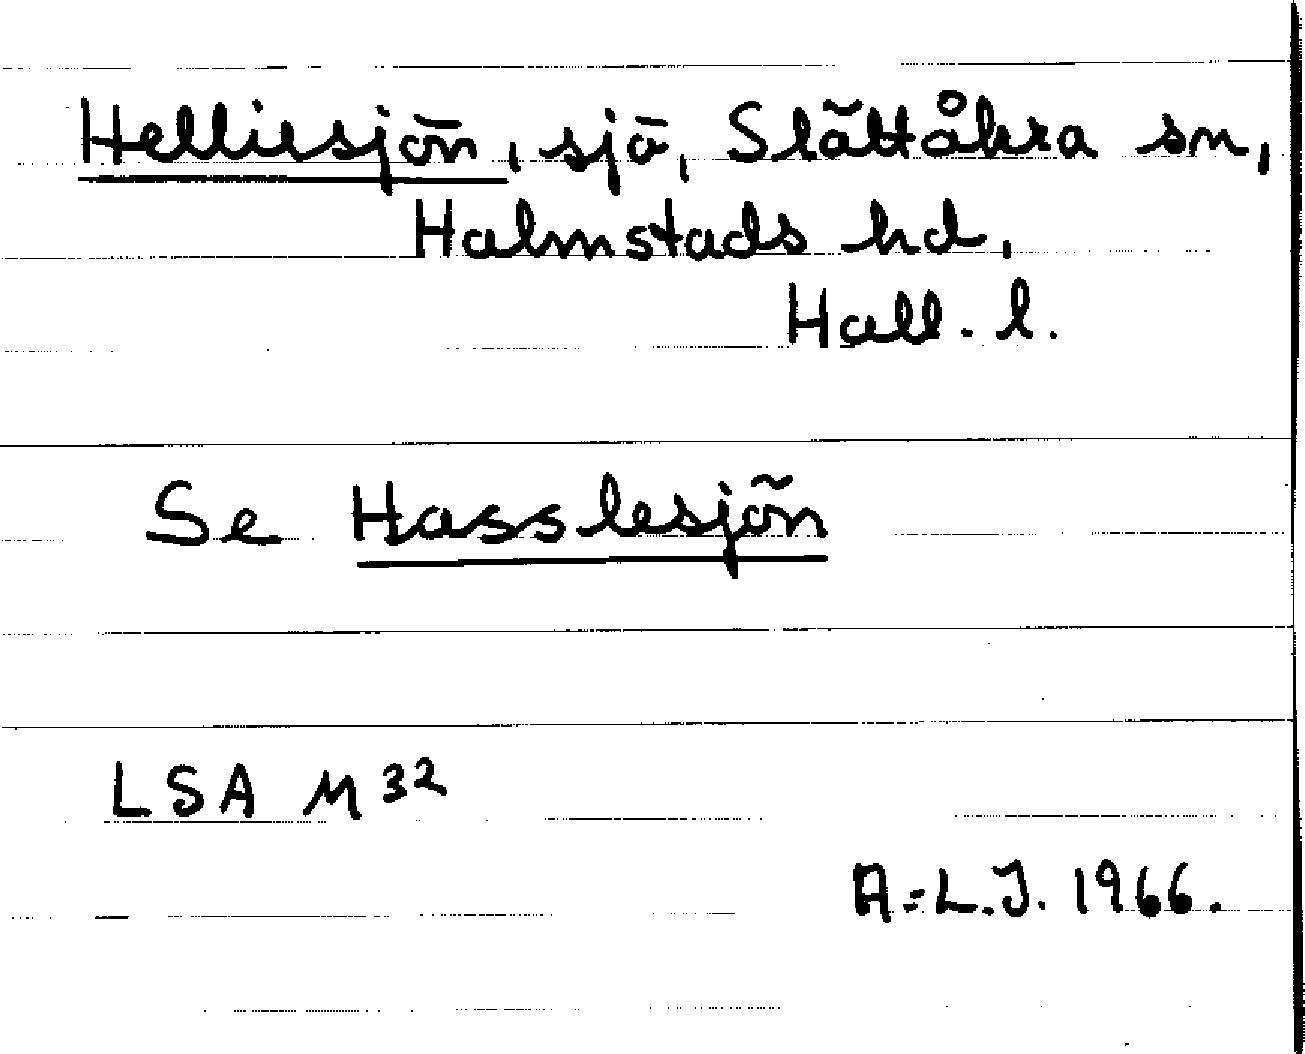 Helliesjön, sjö, Slättåkra sn,
Halmstads hd,
Hall. l.
Se Hasslesjön
LSA M 32
A=L.J. 1966.